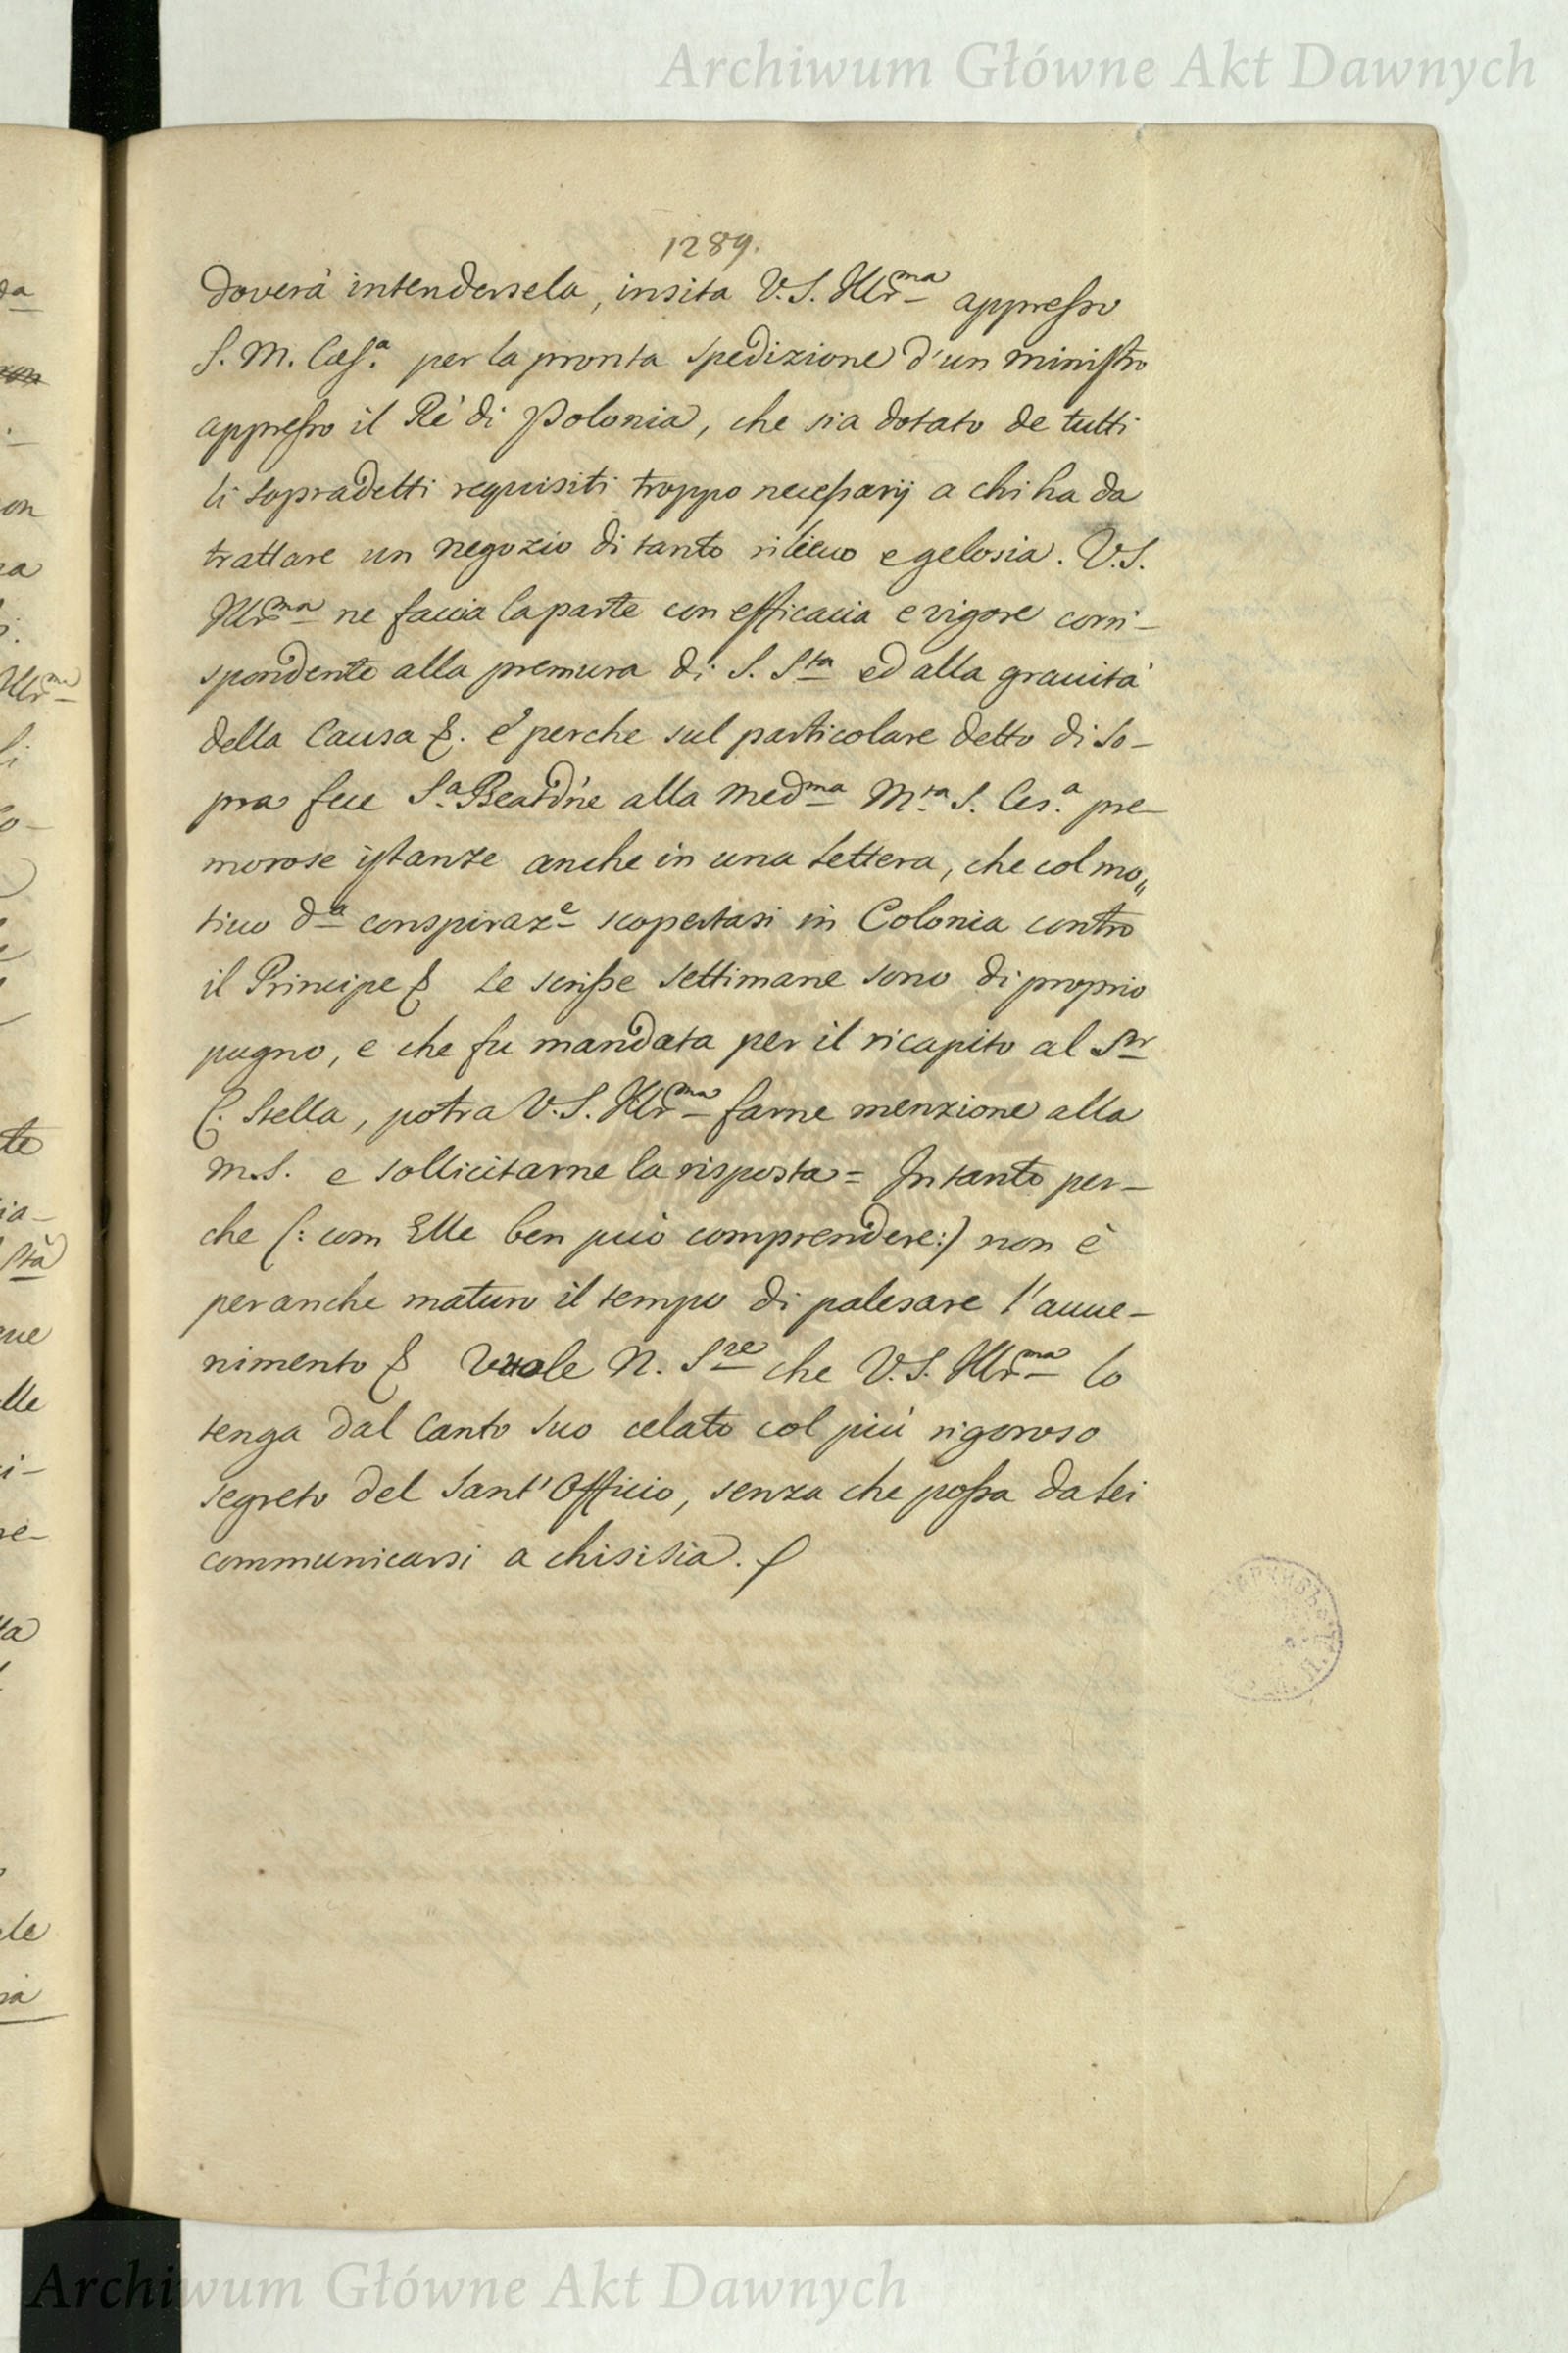 Archiwum Główne Akt Dawnych
1289.
doverà intendersela, insita V.S. Illr.ma appresso
S. M. Caes.a per la pronta spedizione d'un ministro
appresso il Rè di Polonia, che sia dotato de tutti
li sopradetti requisiti troppo necessarij a chi ha da
trattare un negozio di tanto rilievo e gelosia. V.S.
Illr.ma ne faccia la parte con efficacia e vigore corri-
spondente alla premura di S. S.ta ed alla gravità
della Causa &. e perche sul particolare detto di so-
pra fece S.a Beatd'ne alla med.ma M.ta S. Ces.a pre-
morose istanze anche in una lettera, che col mo„
tivo d.a conspiraz.e scopertasi in Colonia contro
il Principe & le scrisse settimane sono di proprio
pugno, e che fu mandata per il ricapito al S.r
C. Stella, potra V.S. Illr.ma farne menzione alla
M.S. e sollicitarne la risposta = Intanto per-
che (: com Elle ben può comprendere:) non è
peranche maturo il tempo di palesare l'avve-
nimento & Vuole N. S.re che V.S. Illr.ma lo
tenga dal Canto suo celato col più rigoroso
segreto del Sant'Officio, senza che possa da lei
communicarsi a chisisia.
Archiwum Główne Akt Dawnych